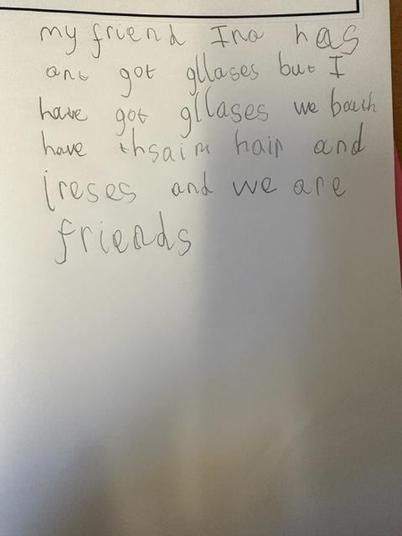 my friend Ina has
ant got gllases but I
have got gllases we bouth
have thsaim hair and
ireses and we are
friends